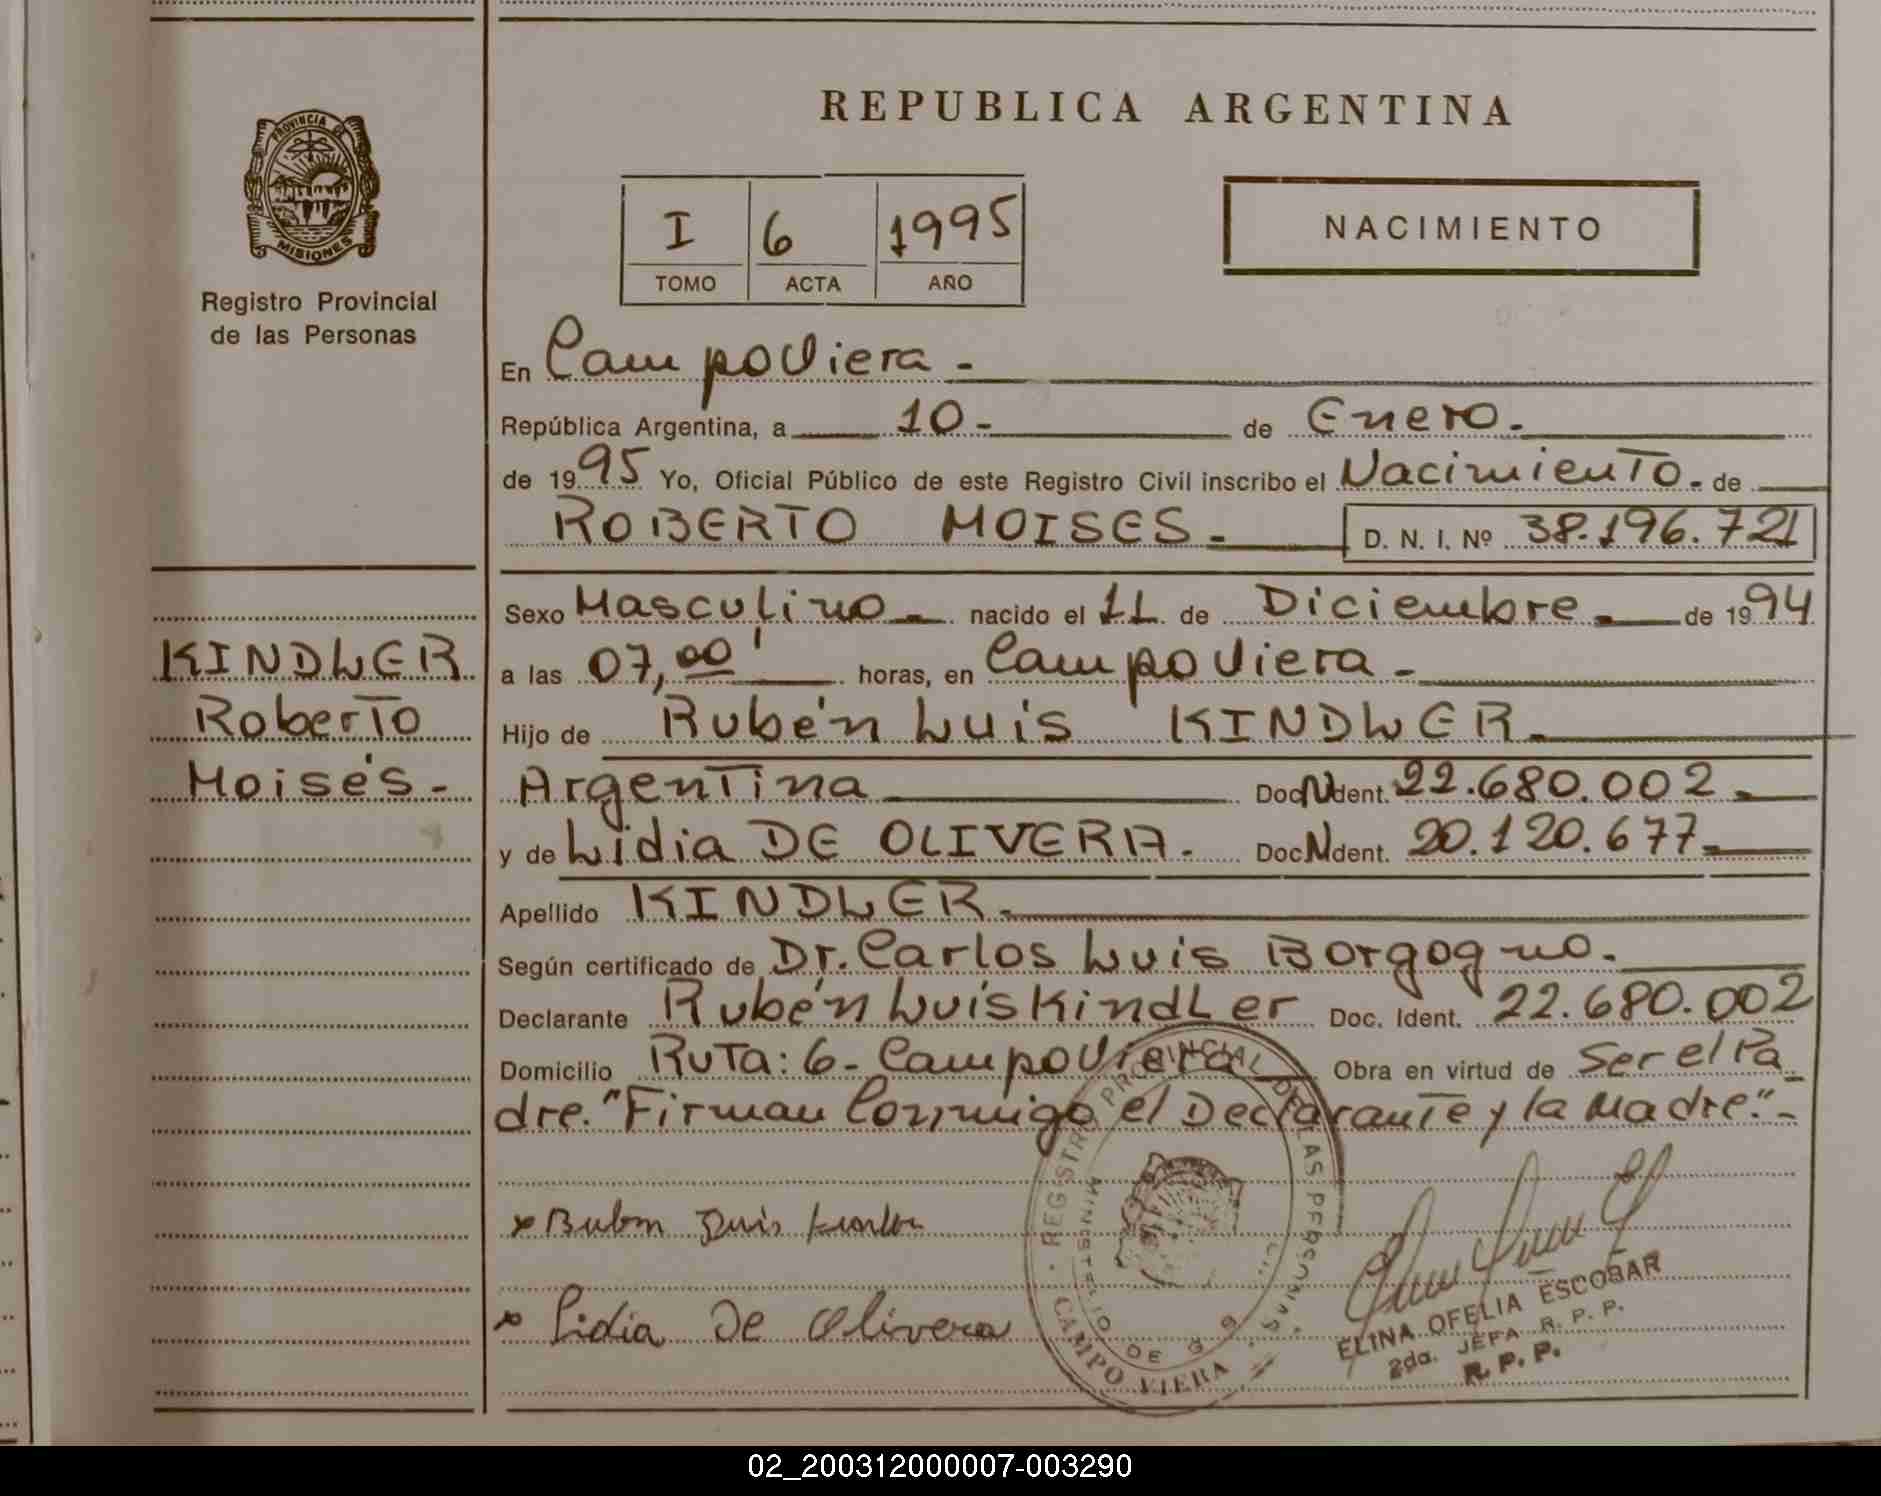 REPUBLICA ARGENTINA
PROVINCIA DE
MISIONES
Registro Provincial
de las Personas
I 6 1995
TOMO ACTA AÑO
NACIMIENTO
En CampoViera -
República Argentina, a 10- de Enero.
de 1995 Yo, Oficial Público de este Registro Civil inscribo el Nacimiento. de
ROBERTO MOISES. D. N. I. Nº 38.196.721
KINDLER
Roberto
Moisés-
Sexo Masculino nacido el 11 de Diciembre. de 1994
a las 07,00' horas, en CampoViera -
Hijo de Rubén Luis KINDLER.
Argentina Doc N Ident. 22.680.002.
y de Lidia DE OLIVERA. Doc N Ident. 20.120.677
Apellido KINDLER.
Según certificado de Dr. Carlos Luis Borgogno.
Declarante Rubén Luis KindLer Doc. Ident. 22.680.002
Domicilio RUTA: 6- CampoViera Obra en virtud de Ser el Pa_
dre. "Firman Conmigo el Declarante y la Madre."-
x Lidia De Olivera
REGISTRO PROVINCIAL DE LAS PERSONAS
MINISTERIO DE G
CAMPO VIERA
ELINA OFELIA ESCOBAR
2da. JEFA R. P. P.
R. P. P.
02_200312000007-003290